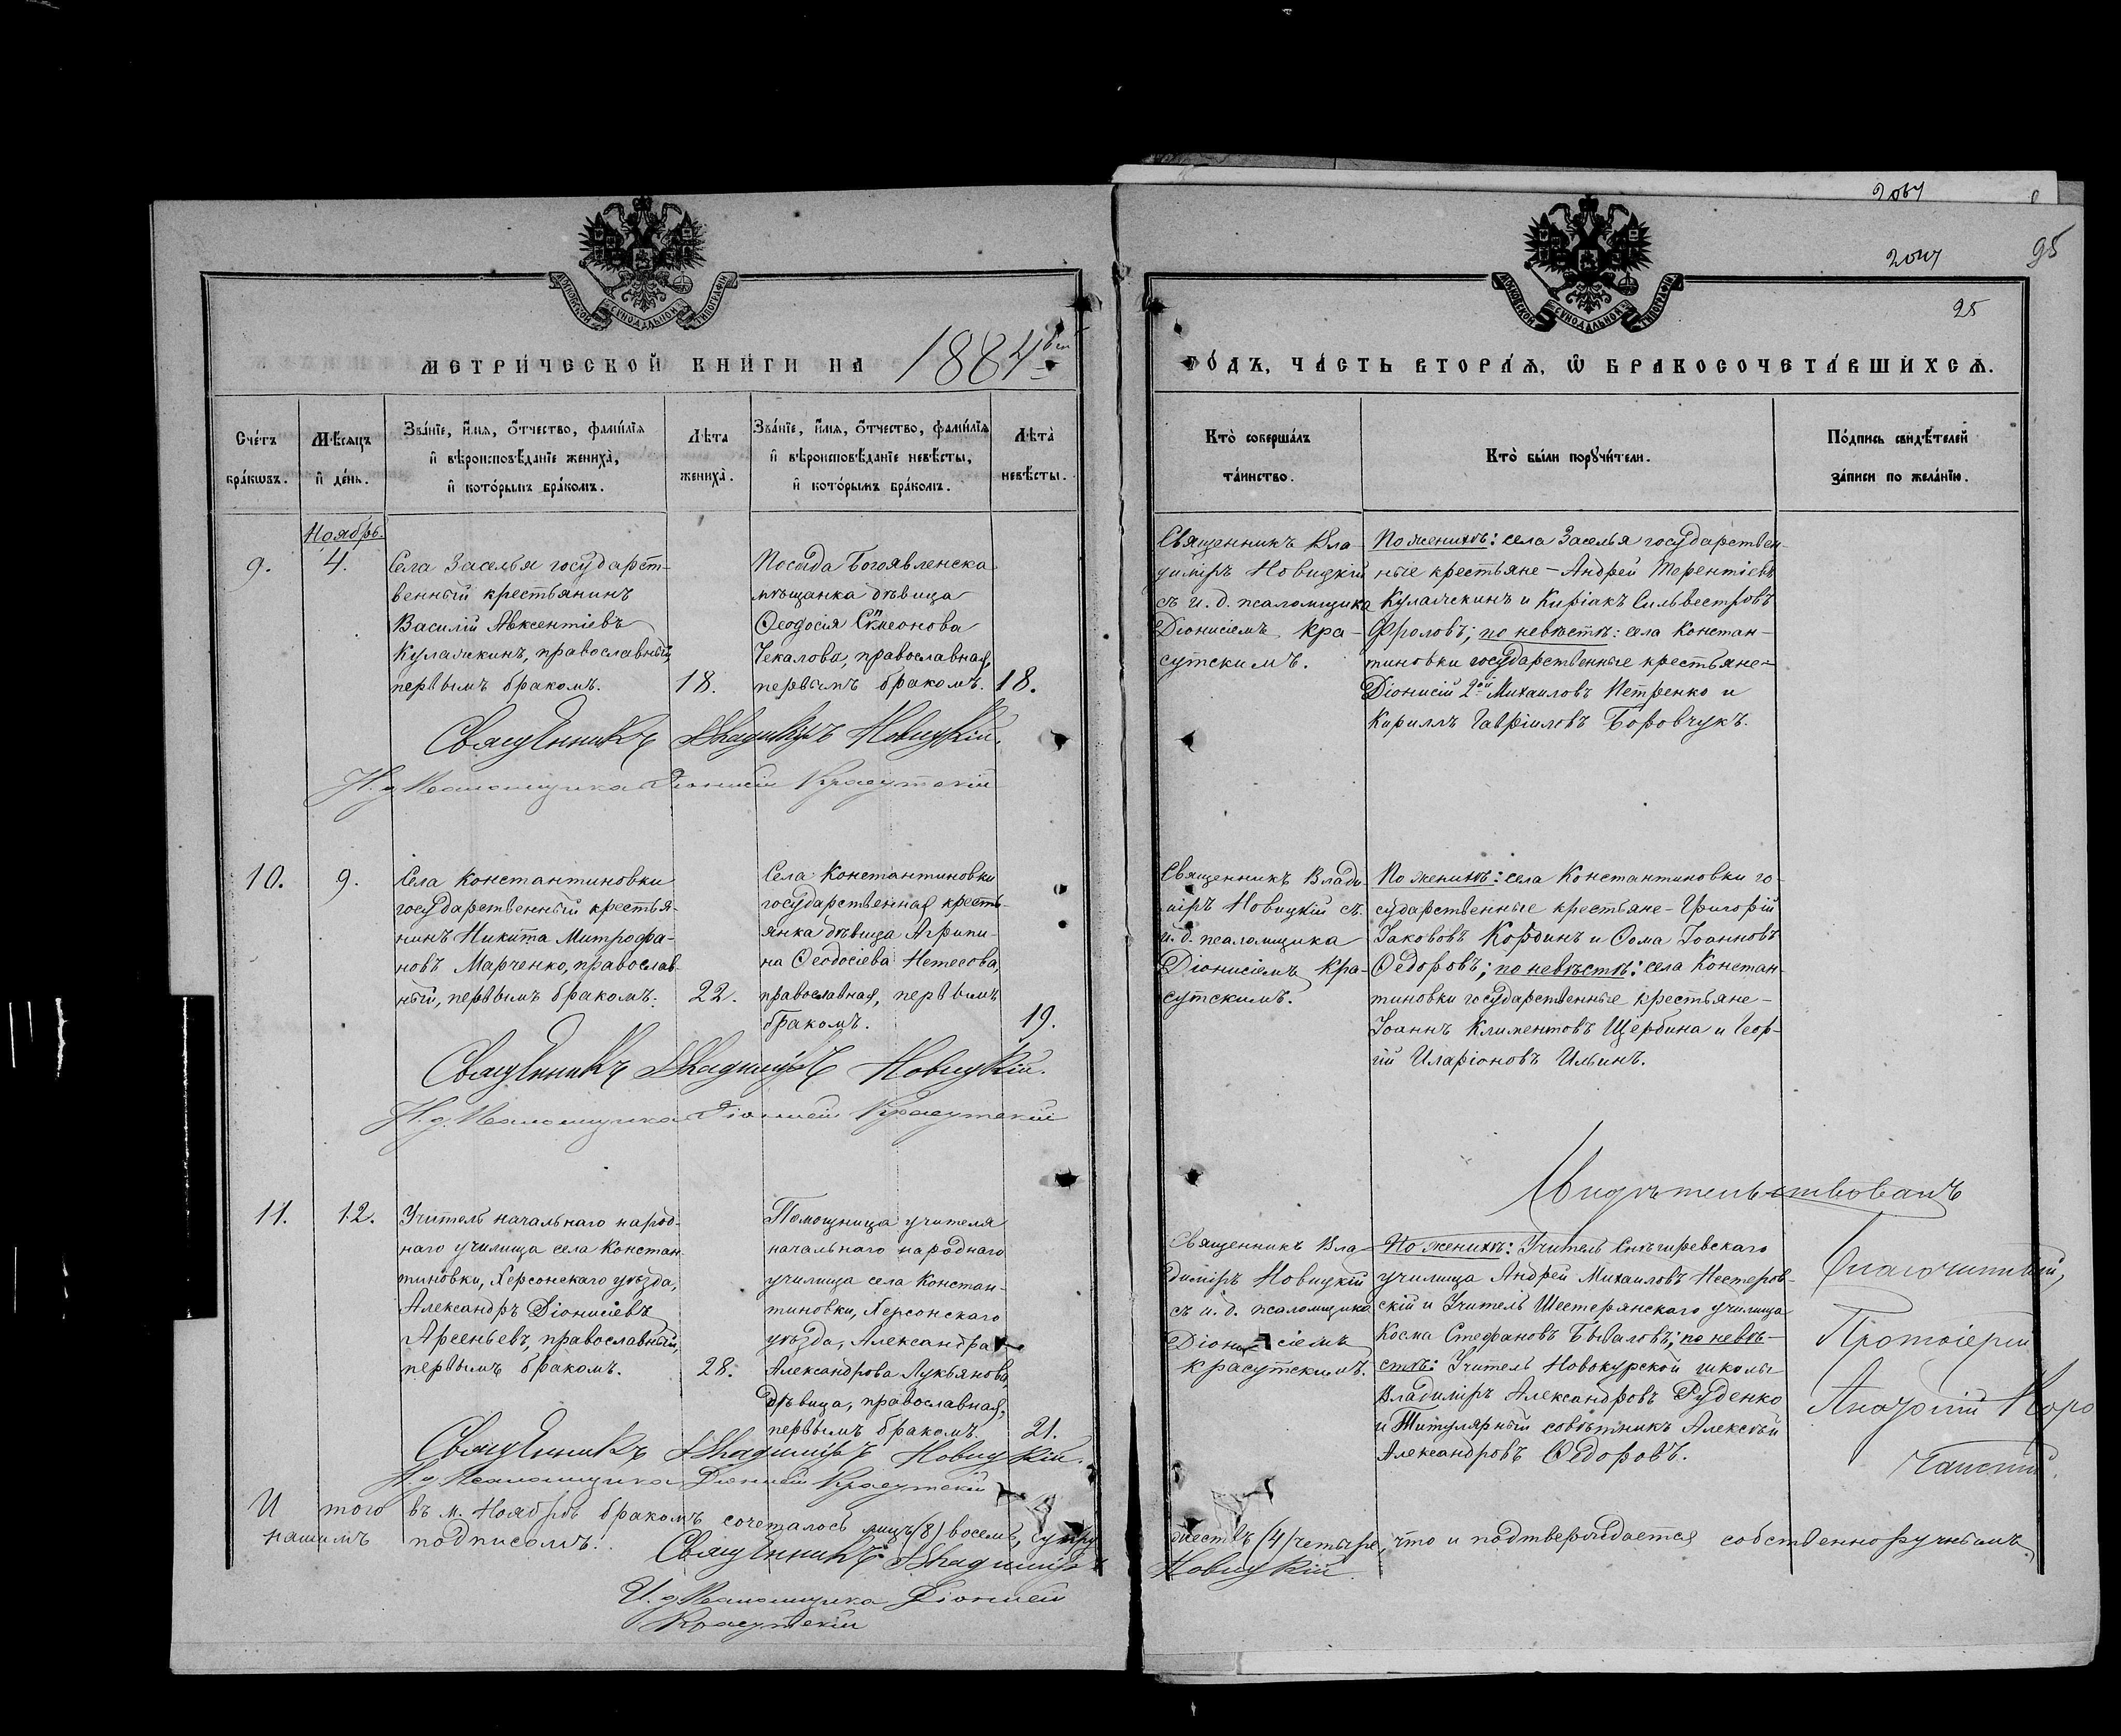 2047
2047
95
25
МОСКОВСКОЙ СѴНОДАЛЬНОЙ ТИПОГРАФІИ
МОСКОВСКОЙ СѴНОДАЛЬНОЙ ТИПОГРАФІИ
МЕТРИ́ЧЕСКОЙ КНИ́ГИ НА 1884й
ГО́ДЪ, ЧА́СТЬ ВТОРА́Я, Ѡ БРАКОСОЧЕТА́ВШИХСЯ.
Сче́тъ
бра́кѡвъ.
Мѣ́сяцъ
и҆ де́нь.
Зва́нїе, и҆́мя, ѻ҆́тчество, фами́лїя
и҆ вѣроисповѣ́данїе жениха̀,
и҆ кото́рымъ бра́комъ.
Лѣ́та
жениха̀.
Зва́нїе, и҆́мя, ѻ҆́тчество, фами́лїя
и҆ вѣроисповѣ́данїе невѣ́сты,
и҆ кото́рымъ бра́комъ.
Лѣ́та
невѣ́сты.
Кто̀ соверша́лъ
та́инство.
Кто̀ бы́ли порꙋчи́тели.
По́дпись свидѣ́телей
за́писи по жела́нїю.
Ноябрь.
9.
4.
Села Заселья государст-
венный крестьянинъ
Василій Авксентіевъ
Кулачкинъ, православный,
первымъ бракомъ.
18.
Посада Богоявленска
мѣщанка дѣвица
Ѳеодосія Симеонова
Чекалова, православная,
первымъ бракомъ.
18.
Священникъ Вла-
диміръ Новицкій
съ и. д. псаломщика
Діонисіемъ Кра-
сутскимъ.
По женихѣ: села Заселья государствен-
ные крестьяне - Андрей Терентіевъ
Кулачкинъ и Киріакъ Сильвестровъ
Фроловъ; по невѣстѣ: села Констан-
тиновки государственные крестьяне -
Діонисій 2ой Михаиловъ Петренко и
Кириллъ Гавріиловъ Боровчукъ.
Священникъ Владиміръ Новицкій.
И. д. Псаломщика Діонисій Красутскій
10.
9.
Села Константиновки
государственный крестья-
нинъ Никита Митрофа-
новъ Марченко, православ-
ный, первымъ бракомъ.
22.
Села Константиновки
государственная кресть-
янка дѣвица Агрипи-
на Ѳеодосіева Нетесова,
православная, первымъ
бракомъ.
19.
Священникъ Влади-
міръ Новицкій съ
и. д. псаломщика
Діонисіемъ Кра-
сутскимъ.
По женихѣ: села Константиновки го-
сударственные крестьяне - Григорій
Іакововъ Кординъ и Ѳома Іоанновъ
Ѳедоровъ; по невѣстѣ: села Констан-
тиновки государственные крестьяне -
Іоаннъ Климентовъ Щербина и Геор-
гій Иларіоновъ Ильинъ.
Священникъ Владиміръ Новицкій.
И. д. Псаломщика Діонисій Красутскій
11.
12.
Учитель начальнаго народ-
наго училища села Констан-
тиновки, Херсонскаго уѣзда,
Александръ Діонисіевъ
Арсеньевъ, православный,
первымъ бракомъ.
28.
Помощница учителя
начальнаго народнаго
училища села Констан-
тиновки, Херсонскаго
уѣзда, Александра
Александрова Лукьянова,
дѣвица, православная,
первымъ бракомъ.
21.
Священникъ Вла-
диміръ Новицкій
съ и. д. псаломщика
Діонисіемъ
Красутскимъ.
По женихѣ: Учитель Снѣгиревскаго
училища Андрей Михаиловъ Нестеров-
скій и Учитель Шестерянскаго училища
Косма Стефановъ Бываловъ; по невѣ-
стѣ: Учитель Новокурской школы
Владиміръ Александровъ Руденко
и Титулярный совѣтникъ Алексѣй
Александровъ Ѳедоровъ.
Свидѣтельствовалъ
Благочинный,
Протоіерей
Священникъ Владиміръ Новицкій.
И. д. Псаломщика Діонисій Красутскій
И того въ м. Ноябрѣ бракомъ сочеталось лицъ (8) восемь, супру
жествъ (4) четыре, что и подтверждается собственноручнымъ
нашимъ подписомъ.
Священникъ Владиміръ Новицкій.
И. д. Псаломщика Діонисій
Красутскій